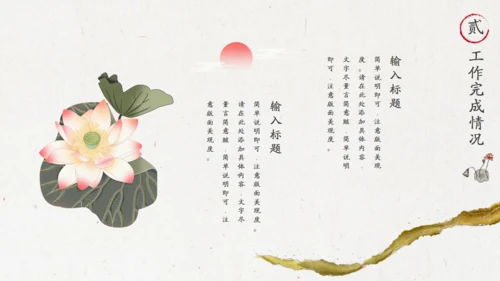 贰
工作完成情况
输入标题
简单说明即可,注意版面美观
度。请在此处添加具体内容,
文字尽量言简意赅,简单说明
即可,注意版面美观度。
输入标题
简单说明即可,注意版面美观度。
请在此处添加具体内容,文字尽
量言简意赅,简单说明即可,注
意版面美观度。